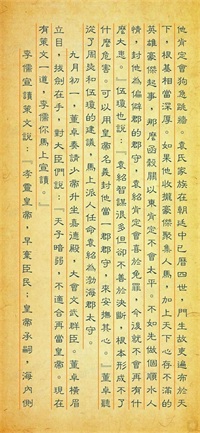 他肯定會狗急跳牆。袁氏家族在朝廷中已歷四世，門生故吏遍布於天
下，根基相當深厚。如果他收攏豪傑聚集人馬，加上天下心存不滿的
英雄豪傑起事，那麼函穀關以東肯定不會太平。不如先做個順水人
情，封他為偏僻郡的郡守，袁紹肯定會喜於免罪，今後就不會再有什
麼大患。』伍瓊也說：『袁紹智謀很多但卻不善於決斷，根本形成不了
什麼危害。可以用皇帝名義封他當一郡郡守，來安撫其心。』董卓聽
從了周毖和伍瓊的建議，馬上派人任命袁紹為渤海郡太守。
九月初一，董卓奏請少帝升坐嘉德殿，大會文武群臣。董卓橫眉
立目，拔劍在手，對大臣們說：『天子暗弱，不適合再當皇帝。現在
有策文一道，李儒你馬上宣讀。』
李儒宣讀策文說：『孝靈皇帝，早棄臣民；皇帝承嗣，海內側